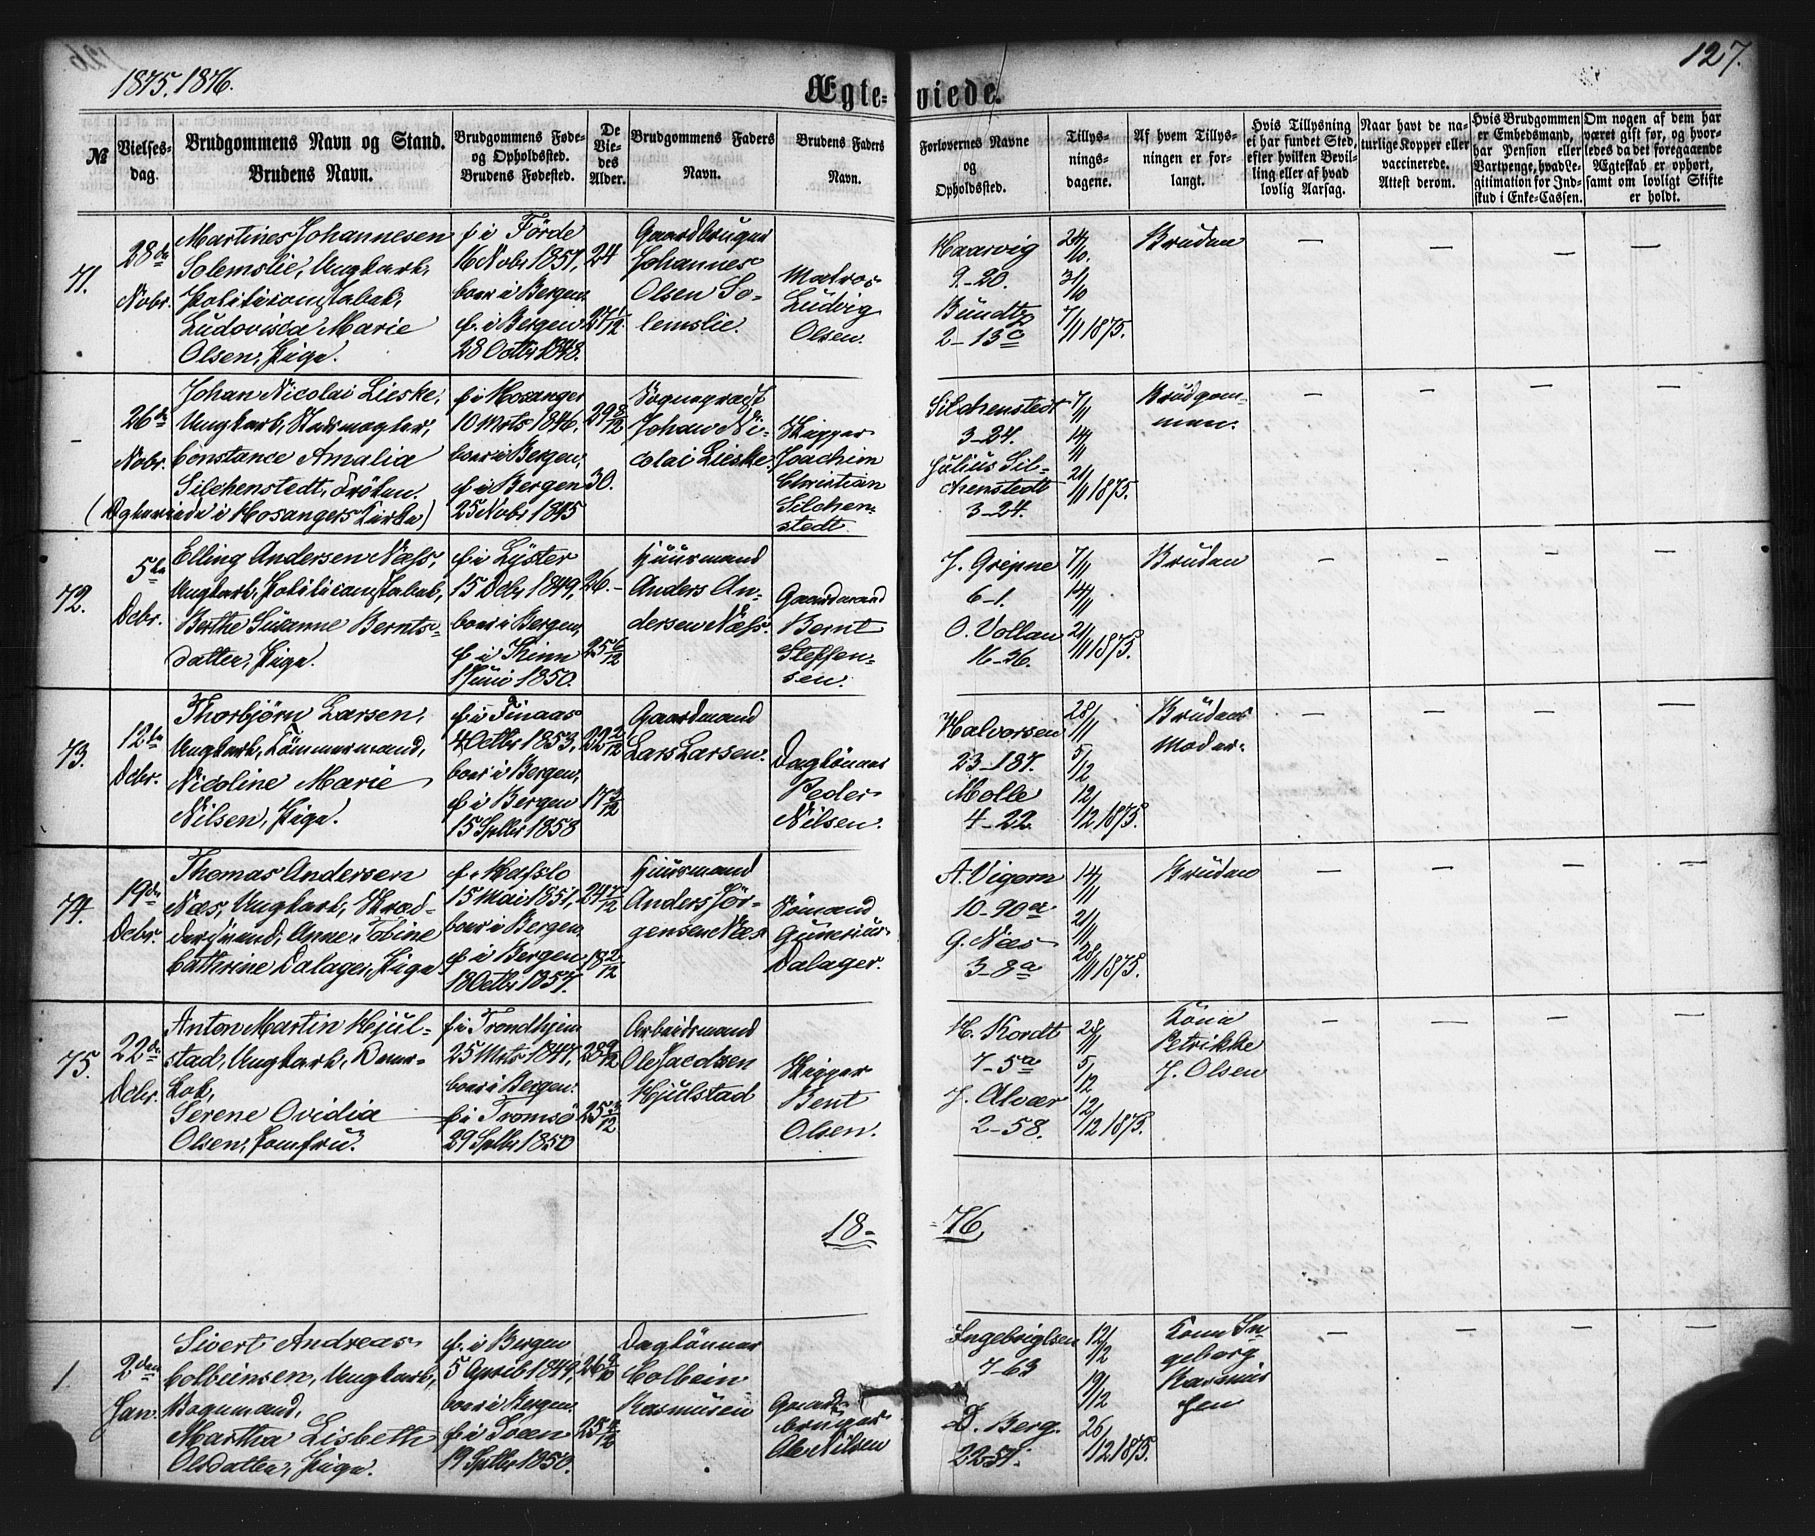 1875. 1876.
127.
Ægteviede.
№
Vielsesdag.
Brudgommens Navn og Stand.
Brudens Navn.
Brudgommens Føde- og Opholdssted.
Brudens Fødested.
De Viedes Alder.
Brudgommens Faders Navn.
Brudens Faders Navn.
Forlovernes Navne og Opholdssted.
Tillysningsdagene.
Af hvem Tillysningen er forlangt.
Hvis Tillysning ei har fundet Sted, efter hvilken Bevilling eller af hvad lovlig Aarsag.
Naar havt de naturlige Kopper eller vaccinerede. Attest derom.
Hvis Brudgommen er Embedsmand, har Pension eller Vartpenge, hvad Legitimation for Indskud i Enke-Cassen.
Om nogen af dem har været gift før, og hvorledes da det foregaaende Ægteskab er ophørt, samt om lovligt Skifte er holdt.
71.
28de
Nobr.
Martines Johannesen
Solemslie, Ungkarl,
Politiconstabel,
Ludovisca Marie
Olsen, Pige.
f i Förde
16 Nobr 1851,
boer i Bergen
f. i Bergen
28 Octbr 1848.
24
27 1/12
Gaardbruger
Johannes
Olsen So-
lemslie.
Matros
Ludvig
Olsen.
Haarvig
9-20.
Bundtz
2-13c
24/10.
31/10
7/11 1875.
Bruden
26de
Nobr.
Johan Nicolai Lieske,
Ungkarl, Stadsmægler,
Constance Amalia
Silchenstedt, Fröken.
(Ægteviede i Hosangers Kirke)
f i Hosanger
10 Mrts 1846.
boer i Bergen,
f i Bergen
25 Nobr 1845
29 8/12
30.
Sognepræst
Johan Ni-
colai Lieske.
Skipper
Joachim
Christian
Silchen-
stedt.
Silchenstedt
3-24.
Julius Sil-
chenstedt
3-24.
7/11
14/11
21/11 1875.
Brudgom-
men.
72.
5te
Dcbr.
Elling Andersen Næss,
Ungkarl, Politiconstabel,
Berthe Susanne Bernts-
datter, Pige.
f i Lyster
15 Dcbr 1849,
boer i Bergen,
f i Kinn
1 Juni 1850.
26.-
25 6/12
Huusmand
Anders An-
dersen Næss.
Gaardmand
Bernt
Steffen-
sen.
J. Grepne
6-1.
O. Vollan
16-26.
7/11
14/11
21/11 1875.
Bruden
73.
12te
Dcbr.
Thorbjørn Larsen,
Ungkarl, Tömmermand,
Nicoline Marie
Nilsen, Pige.
f i Finaas
4 Octbr 1853,
boer i Bergen,
f i Bergen
15 Sptbr 1858
22 2/12
17 3/12
Gaardmand
Lars Larsen.
Daglönner
Peder
Nilsen.
Halvorsen
23-187.
Molle
4-22
28/11
5/12
12/12 1875.
Brudens
Moder.
74.
19de
Dcbr.
Thomas Andersen
Næs, Ungkarl, Skræd-
dersvend, Anne Tobine
Cathrine Dalager, Pige
f. Hafslo
15 Mai 1851,
boer i Bergen,
f i Bergen
18 Octbr 1857.
24 7/12
18 2/12
Huusmand
Anders Jör-
gensen Næs
Sömand
Dalager.
A. Vigom
10-90a
G. Næs
3-8a
14/11
21/11
28/11 1875.
Bruden
75.
22de
Dcbr.
Anton Martin Hjul-
stad, Ungkarl,
Serene Ovidia
Olsen, Jomfru.
f i Trondhjem
25 Mrts 1847,
boer i Bergen.
f i Tromsö
29 Sptbr 1850
28 9/12
25 3/12
Arbeidsmand
Ole Jacobsen
Hjulstad
Skipper
Bent
Olsen.
H. Kordt
7-5a
J. Alvær
2-58.
28/11
5/12
12/12 1875.
Kone
Petrikke
J. Olsen
18-76.
1
2den
Jan.
Sivert Andreas
Colbensen, Ungkarl,
Bogmand,
Martha Lisbeth
Olsdatter, Pige.
f. i Bergen
5 April 1849,
boer i Bergen.
19 Sptbr 1850.
26 9/12
Daglönner
Colbein
Rasmusen
Gaard-
bruger
Ole Nilsen
Ingebrigtsen
7-63
D. Berg.
22-57.
12/12
19/12
26/12 1875.
Kone In-
geborg
Rasmus-
sen